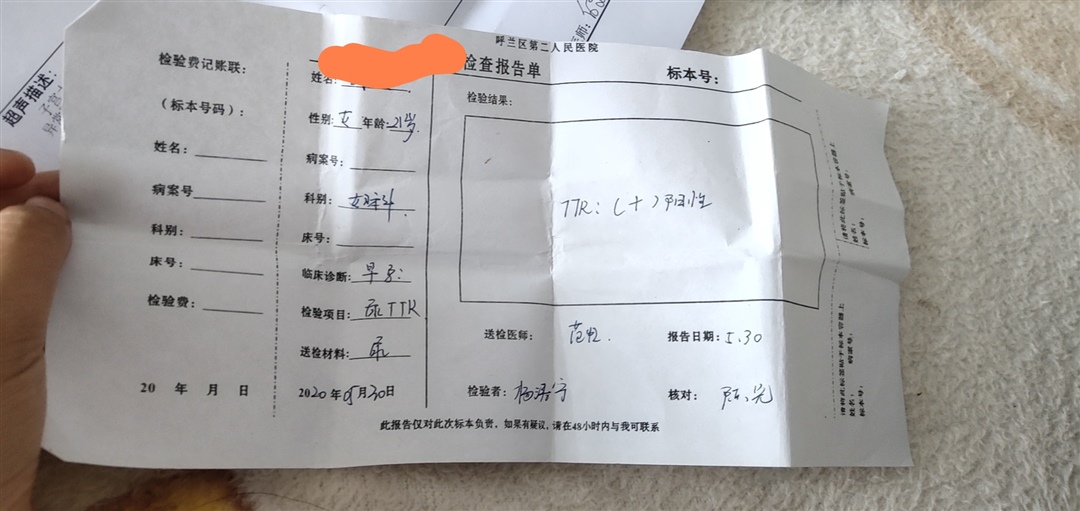 呼兰区第二人民医院
检查报告单
标本号：
检验费记账联：
（标本号码）：
姓名：
病案号
科别：
床号：
检验费：
20 年 月 日
姓名：
性别：女 年龄：21岁
病案号：
科别：妇产科
床号：
临床诊断：早孕：
检验项目：尿TTR
送检材料：尿
2020年5月30日
检验结果：
TTR：（+）阳性
送检医师：
报告日期：5.30
检验者：
核对：
此报告仅对此次标本负责，如果有疑议，请在48小时内与我可联系
超声描述：
子宫